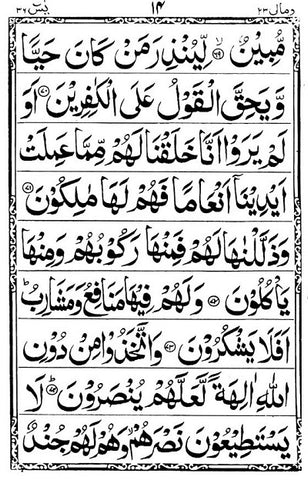 یٰسٓ ۳۶ ۱۴ ومالی ۲۳
مُّبِیْنٌ ﴿۶۹﴾ لِّیُنْذِرَ مَنْ كَانَ حَیًّا
وَّیَحِقَّ الْقَوْلُ عَلَی الْكٰفِرِیْنَ ﴿۷۰﴾ اَوَ
لَمْ یَرَوْا اَنَّا خَلَقْنَا لَهُمْ مِّمَّا عَمِلَتْ
اَیْدِیْنَاۤ اَنْعَامًا فَهُمْ لَهَا مٰلِكُوْنَ ﴿۷۱﴾
وَذَلَّلْنٰهَا لَهُمْ فَمِنْهَا رَكُوْبُهُمْ وَمِنْهَا
یَاْكُلُوْنَ ﴿۷۲﴾ وَلَهُمْ فِیْهَا مَنَافِعُ وَمَشَارِبُ ؕ
اَفَلَا یَشْكُرُوْنَ ﴿۷۳﴾ وَاتَّخَذُوْا مِنْ دُوْنِ
اللّٰهِ اٰلِهَةً لَّعَلَّهُمْ یُنْصَرُوْنَ ﴿۷۴﴾ لَا
یَسْتَطِیْعُوْنَ نَصْرَهُمْ ۙ وَهُمْ لَهُمْ جُنْدٌ